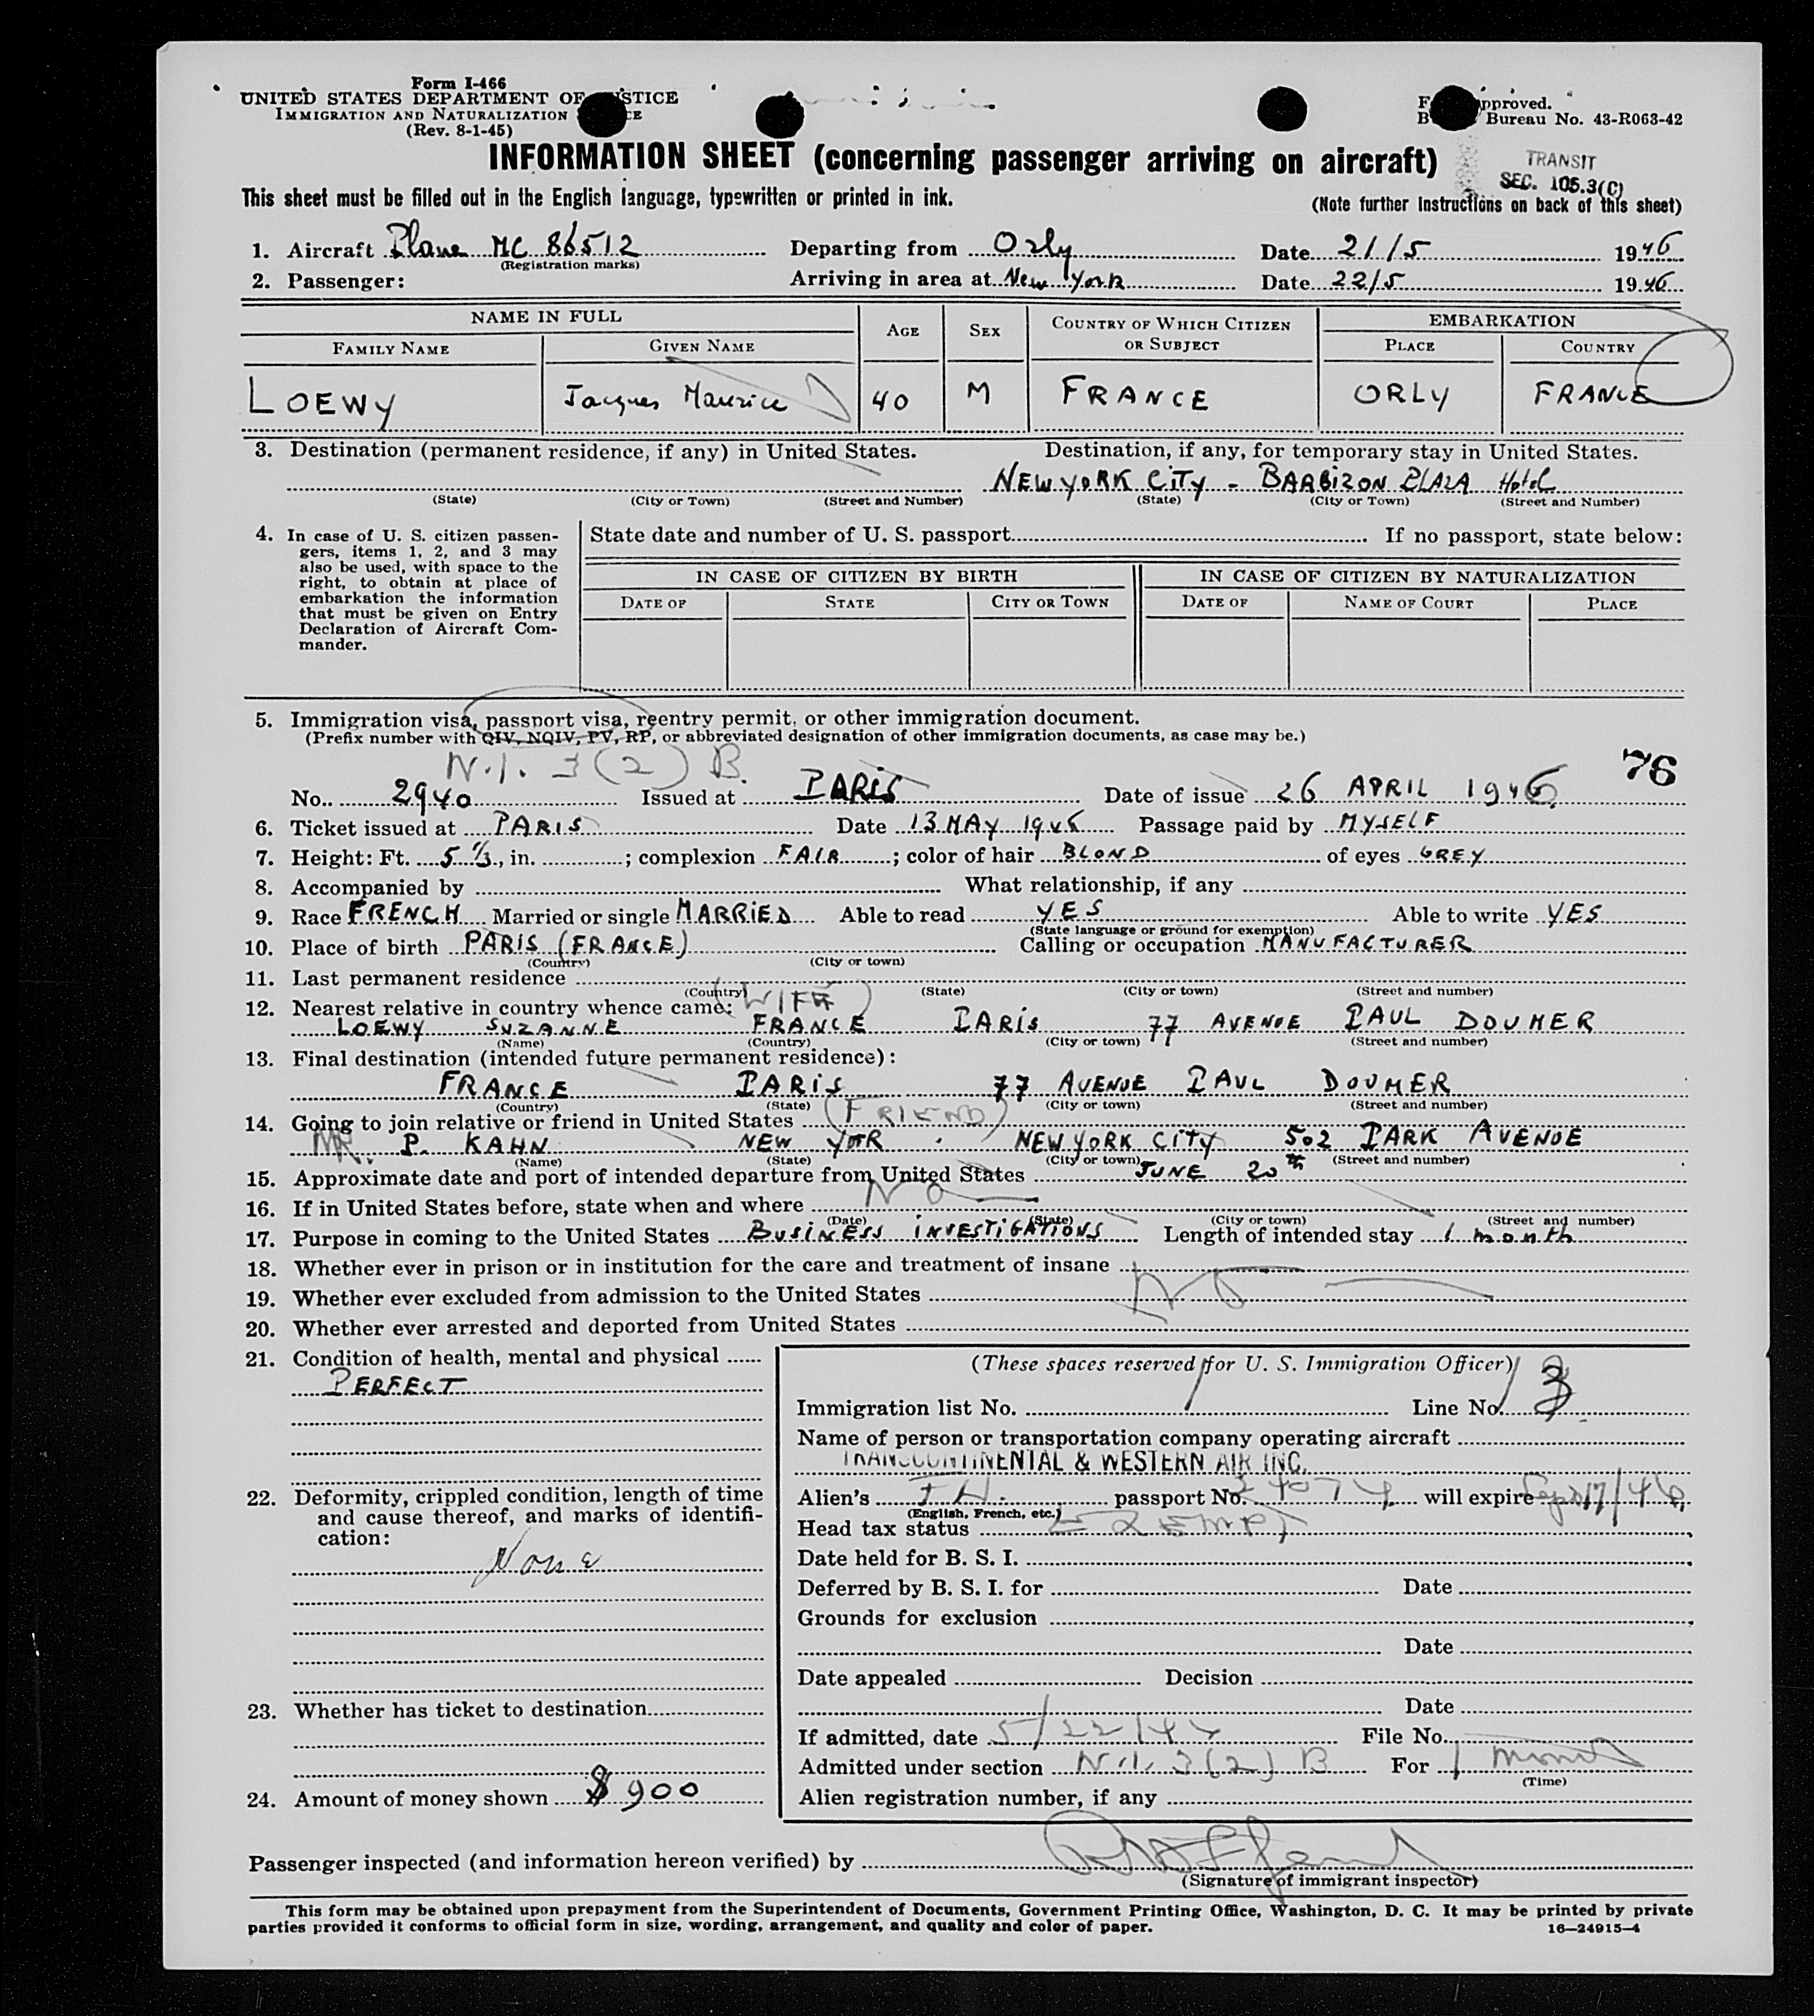 Form I-466
UNITED STATES DEPARTMENT OF JUSTICE
IMMIGRATION AND NATURALIZATION
(Rev. 8-1-45)
pproved.
Bureau No. 43-R063-42
INFORMATION SHEET (concerning passenger arriving on aircraft)
TRANSIT
SEC. 105.3(C)
This sheet must be filled out in the English language, typewritten or printed in ink.
(Note further instructions on back of this sheet)
1. Aircraft Plane MC 86512 Departing from Orly Date 21/5 1946
(Registration marks)
2. Passenger: Arriving in area at New York Date 22/5 1946
NAME IN FULL AGE SEX COUNTRY OF WHICH CITIZEN OR SUBJECT EMBARKATION
FAMILY NAME GIVEN NAME PLACE COUNTRY
LOEWY Jacques Maurice 40 M FRANCE ORLY FRANCE
3. Destination (permanent residence, if any) in United States. Destination, if any, for temporary stay in United States.
NEW YORK CITY - BARBIZON PLAZA Hotel
(State) (City or Town) (Street and Number) (State) (City or Town) (Street and Number)
4. In case of U. S. citizen passen-
gers, items 1, 2, and 3 may
also be used, with space to the
right, to obtain at place of
embarkation the information
that must be given on Entry
Declaration of Aircraft Com-
mander.
State date and number of U. S. passport If no passport, state below:
IN CASE OF CITIZEN BY BIRTH IN CASE OF CITIZEN BY NATURALIZATION
DATE OF STATE CITY OR TOWN DATE OF NAME OF COURT PLACE
5. Immigration visa, passport visa, reentry permit, or other immigration document.
(Prefix number with QIV, NQIV, PV, RP, or abbreviated designation of other immigration documents, as case may be.)
N.I. 3(2) B. 76
No. 2940 Issued at PARIS Date of issue 26 APRIL 1946
6. Ticket issued at PARIS Date 13 MAY 1946 Passage paid by MYSELF
7. Height: Ft. 5 1/3, in. ; complexion FAIR ; color of hair BLOND of eyes GREY
8. Accompanied by What relationship, if any
9. Race FRENCH Married or single MARRIED Able to read YES Able to write YES
(State language or ground for exemption)
10. Place of birth PARIS (FRANCE) Calling or occupation MANUFACTURER
(Country) (City or town)
11. Last permanent residence
(Country) (State) (City or town) (Street and number)
12. Nearest relative in country whence came: (WIFE)
LOEWY SUZANNE FRANCE PARIS 77 AVENUE PAUL DOUMER
(Name) (Country) (City or town) (Street and number)
13. Final destination (intended future permanent residence):
FRANCE PARIS 77 AVENUE PAUL DOUMER
(Country) (State) (City or town) (Street and number)
14. Going to join relative or friend in United States (FRIEND)
MR. P. KAHN NEW YORK NEW YORK CITY 502 PARK AVENUE
(Name) (State) (City or town) (Street and number)
15. Approximate date and port of intended departure from United States JUNE 20th
16. If in United States before, state when and where No
(Date) (State) (City or town) (Street and number)
17. Purpose in coming to the United States BUSINESS INVESTIGATIONS Length of intended stay 1 month
18. Whether ever in prison or in institution for the care and treatment of insane
19. Whether ever excluded from admission to the United States No
20. Whether ever arrested and deported from United States
21. Condition of health, mental and physical
PERFECT
(These spaces reserved for U. S. Immigration Officer)
Immigration list No. 1 Line No. 3
Name of person or transportation company operating aircraft
TRANSCONTINENTAL & WESTERN AIR INC.
22. Deformity, crippled condition, length of time
and cause thereof, and marks of identifi-
cation:
None
Alien's passport No. will expire
(English, French, etc.)
Head tax status EXEMPT
Date held for B. S. I.
Deferred by B. S. I. for Date
Grounds for exclusion
Date
Date appealed Decision
23. Whether has ticket to destination
Date
If admitted, date File No.
Admitted under section N.I. 3(2) B For 1 month
(Time)
24. Amount of money shown $900
Alien registration number, if any
Passenger inspected (and information hereon verified) by
(Signature of immigrant inspector)
This form may be obtained upon prepayment from the Superintendent of Documents, Government Printing Office, Washington, D. C. It may be printed by private
parties provided it conforms to official form in size, wording, arrangement, and quality and color of paper.
16—24915-4